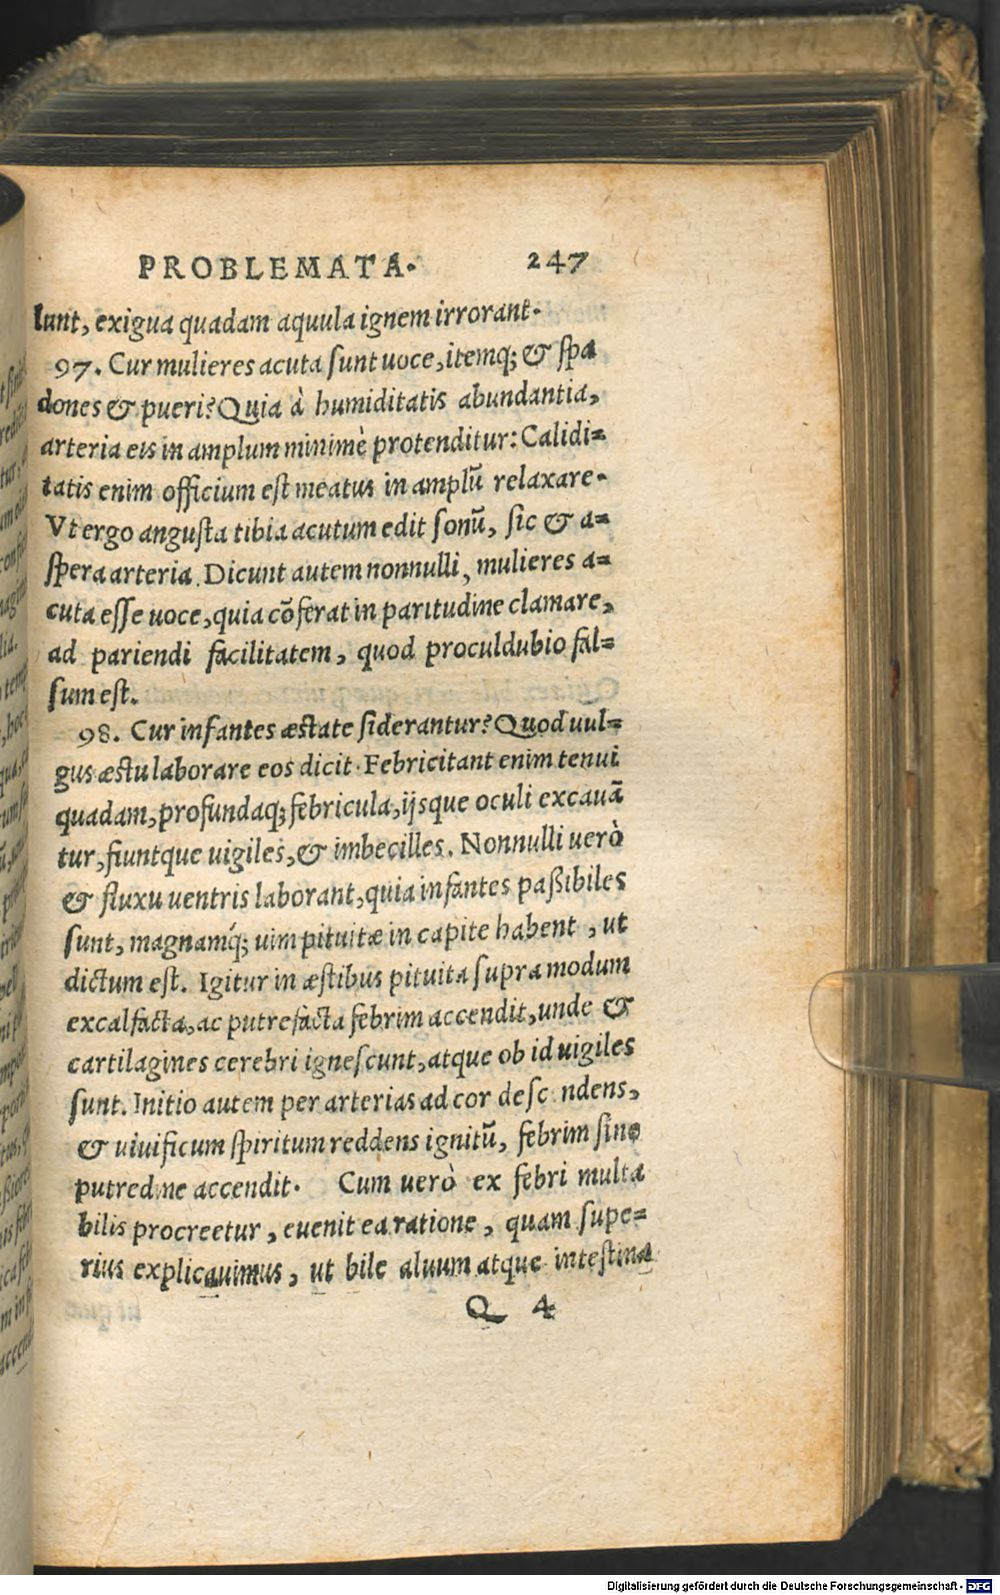 PROBLEMATA. 247
lunt, exigua quadam aquula ignem irrorant.
97. Cur mulieres acuta sunt uoce, itemq; & spa
dones & pueri? Quia à humiditatis abundantia,
arteria eis in amplum minimè protenditur: Calidi=
tatis enim officium est meatus in amplũ relaxare.
Vt ergo angusta tibia acutum edit sonũ, sic & a=
spera arteria. Dicunt autem nonnulli, mulieres a=
cuta esse uoce, quia cõferat in paritudine clamare,
ad pariendi facilitatem, quod proculdubio fal=
sum est.
98. Cur infantes æstate siderantur? Quod uul=
gus æstu laborare eos dicit. Febricitant enim tenui
quadam, profundaq; febricula, ijsque oculi excauã
tur, fiuntque uigiles, & imbecilles. Nonnulli uerò
& fluxu uentris laborant, quia infantes paßibiles
sunt, magnamq́; uim pituitæ in capite habent, ut
dictum est. Igitur in æstibus pituita supra modum
excalfacta, ac putrefacta febrim accendit, unde &
cartilagines cerebri ignescunt, atque ob id uigiles
sunt. Initio autem per arterias ad cor desc ndens,
& uiuificum spiritum reddens ignitũ, febrim sine
putredine accendit. Cum uerò ex febri multa
bilis procreetur, euenit ea ratione, quam supe=
rius explicauimus, ut bile aluum atque intestina
Q 4
Digitalisierung gefördert durch die Deutsche Forschungsgemeinschaft - DFG